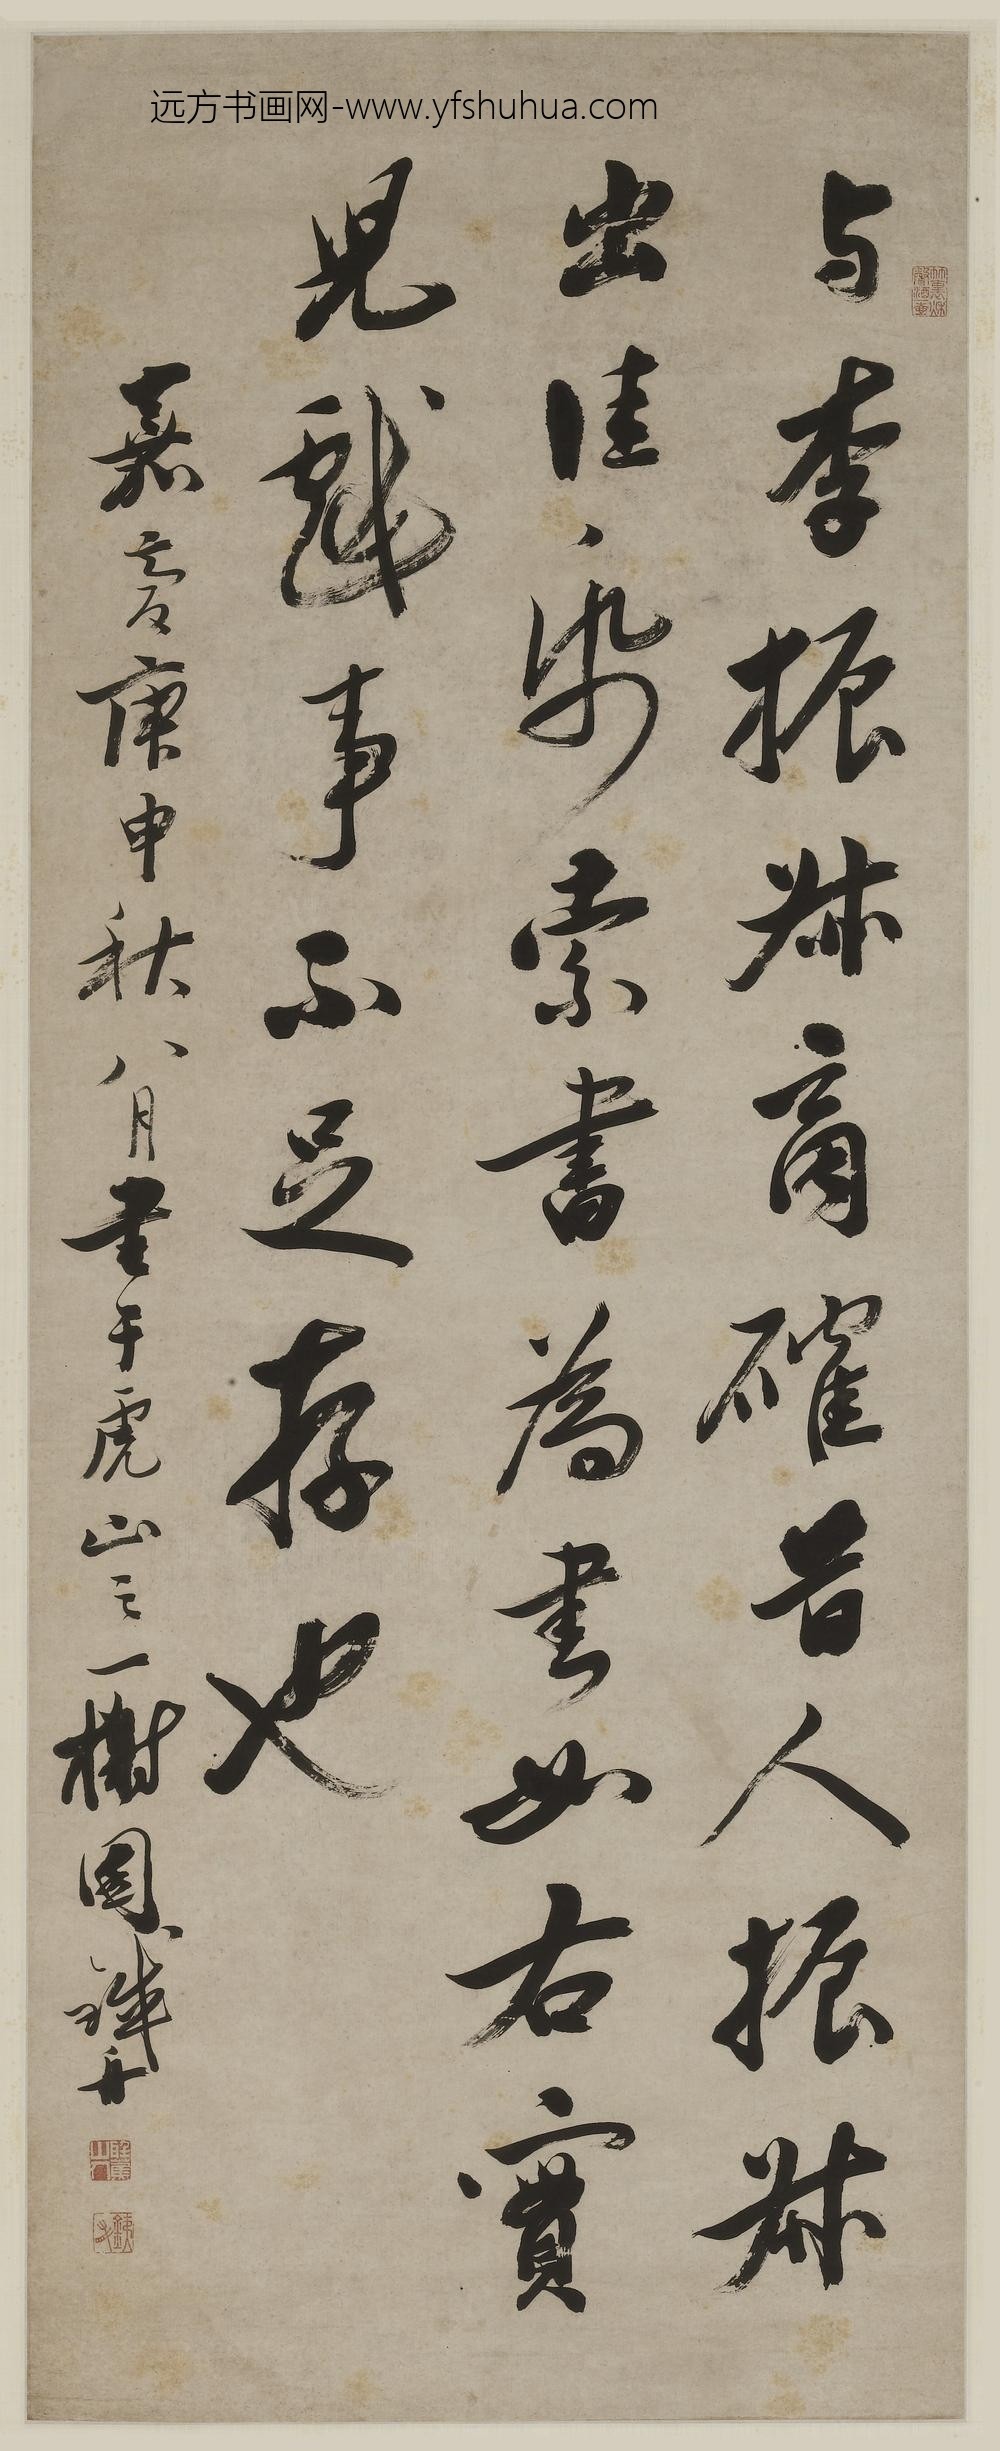 远方书画网-www.yfshuhua.com
与李振叔商確昔人振叔
出佳紙索書為書如右實
兒戲事不足存也
嘉慶庚申秋八月書于虎山之一榭園